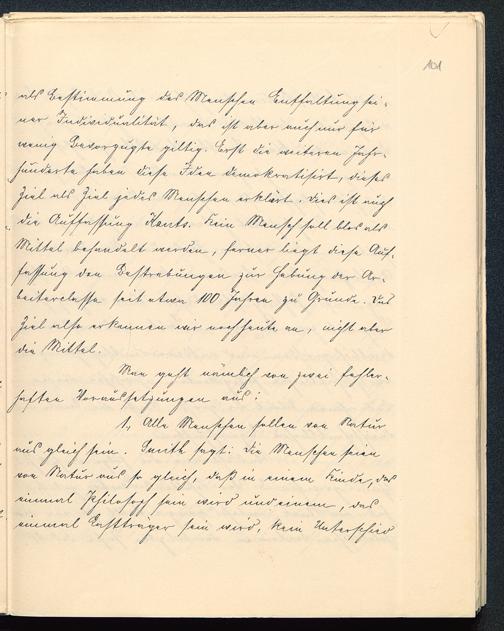 101
als Bestimmung des Menschen Entfaltung sei-
ner Individualität, das ist aber auch nur für
wenig Bevorzugte giltig. Erst die weiteren Jahr-
hunderte haben diese Idee demokratisirt, dieses
Ziel als Ziel jedes Menschen erklärt. Dies ist auch
die Auffassung Kants. Kein Mensch soll blos als
Mittel behandelt werden, ferner liegt diese Auf-
fassung den Bestrebungen zur Hebung der Ar-
beiterclasse seit etwa 100 Jahren zu Grunde. Das
Ziel also erkennen wir noch heute an, nicht aber
die Mittel.
Man geht nämlich von zwei fehler-
haften Voraussetzungen aus:
1, Alle Menschen sollen von Natur
aus gleich sein. Smith sagt: die Menschen seien
von Natur aus so gleich, daß in einem Kinde, das
einmal Philosoph sein wird und einem, das
einmal Lastträger sein wird, kein Unterschied